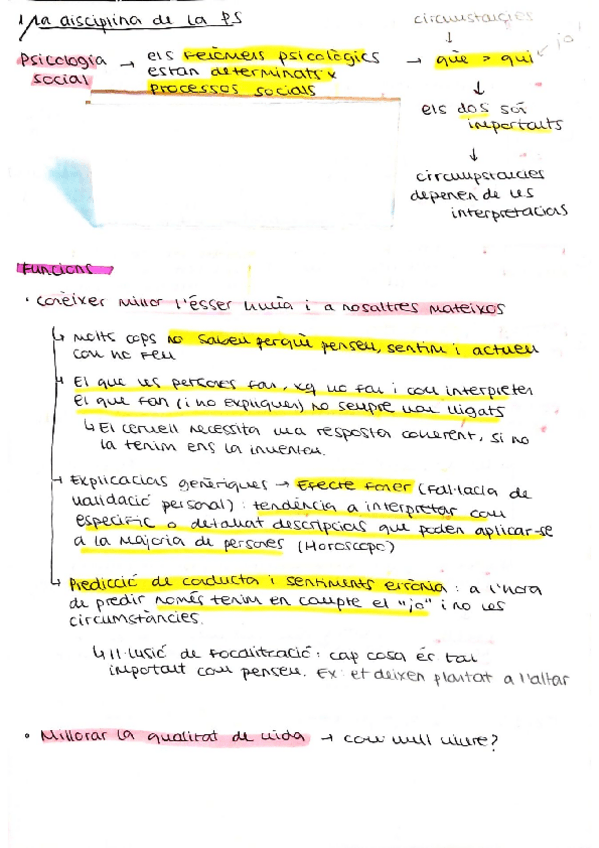 1. La disciplina de la PS
circumstàncies
↓
Psicologia social → els fenòmens psicològics → què > qui ← jo
estan determinats x
processos socials
↓
els dos són
importants
↓
circumpstàncies
depenen de les
interpretacions
Funcions
· Conèixer millor l'ésser humà i a nosaltres mateixos
↳ Molts cops no sabem perquè pensem, sentim i actuem
com ho fem
↳ El que les persones fan, xq ho fan i com interpreten
el que fan (i no expliquen) no sempre van lligats
↳ El cervell necessita una resposta coherent, si no
la tenim ens la inventem.
→ Explicacions genèriques → Efecte Forer (Fal·làcia de
validació personal): tendència a interpretar com
específic o detallat descripcions que poden aplicar-se
a la majoria de persones (Horoscopo)
↳ Predicció de conducta i sentiments errònia: a l'hora
de predir només tenim en compte el "jo" i no les
circumstàncies.
↳ Il·lusió de focalització: cap cosa és tan
important com pensem. Ex: et deixen plantat a l'altar
· Millorar la qualitat de vida → com vull viure?